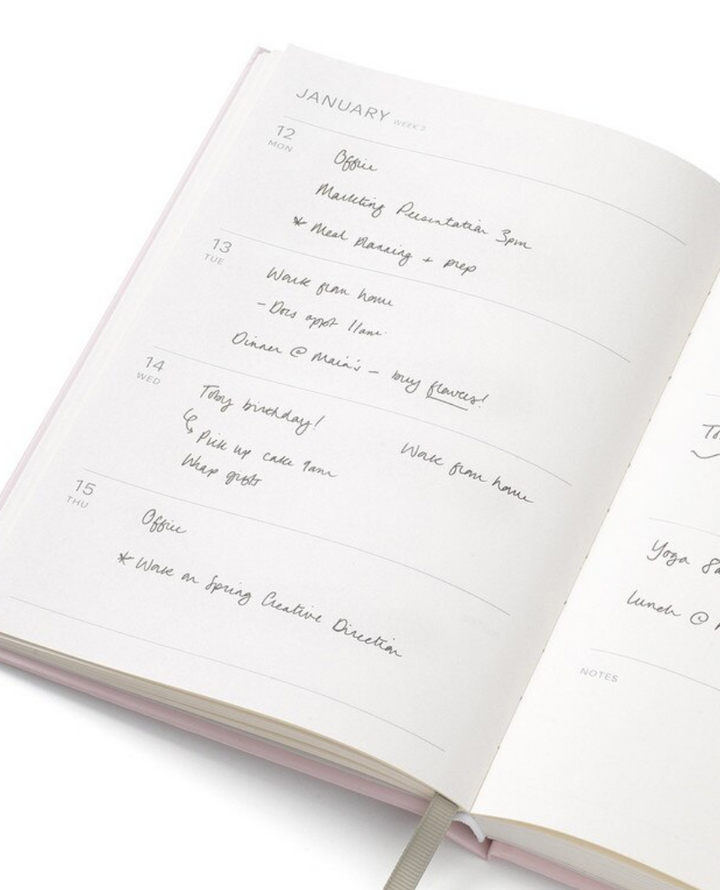 JANUARY WEEK 3
12
MON
Office
Marketing Presentation 3pm
* Meal planning + prep
13
TUE
Work from home
- Docs appt 11am
Dinner @ Maria's - buy flowers!
14
WED
Toby birthday!
Pick up cake 9am
Wrap gifts
Work from home
15
THU
Office
* Work on Spring Creative Direction
Yoga
Lunch @
NOTES